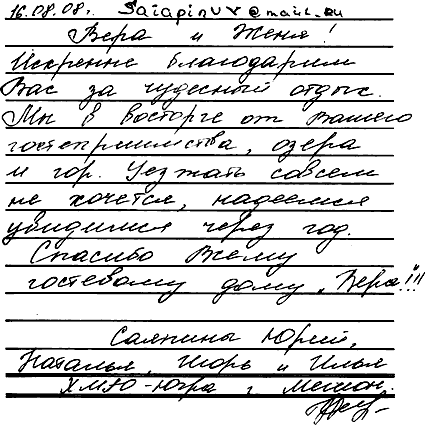 16.08.08г. SaiapinUY@mail.ru
Вера и Женя!
Искренне благодарим
Вас за чудесный отдых.
Мы в восторге от вашего
гостеприимства, озера
и гор. Уезжать совсем
не хочется, надеемся
увидимся через год.
Спасибо Всему
гостевому дому „Вера"!!!
Саяпины Юрий,
Наталья, Игорь и Илья
ХМАО-Югра г.